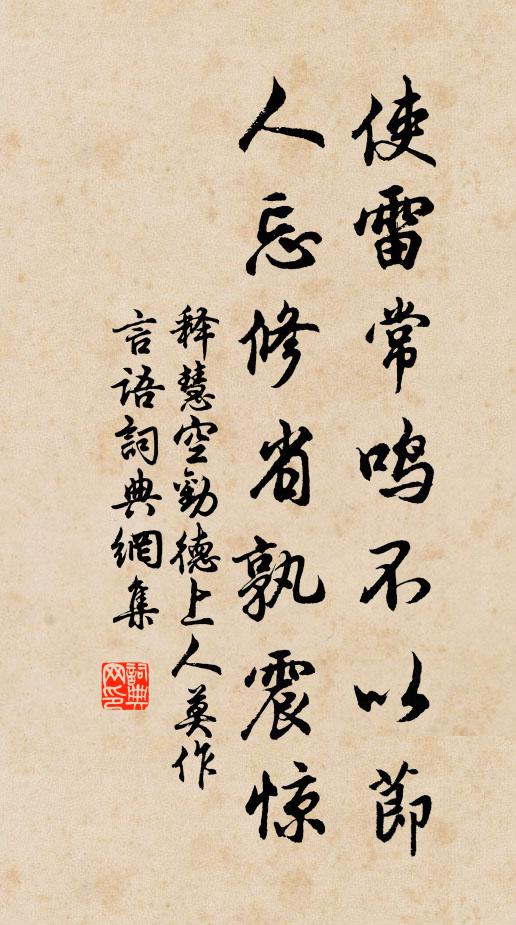 使雷常鸣不以節
人忘修省孰震惊
释慧空勸德上人莫作
言语詞典網集
詞典网印